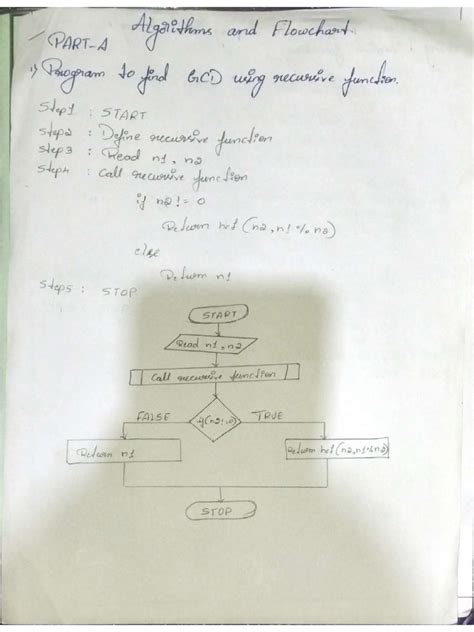 Algorithms and Flowchart
PART-A
1) Program to find GCD using recursive function.
Step1 : START
Step2 : Define recursive function
Step3 : Read n1, n2
Step4 : Call recursive function
if n2 != 0
Return hcf (n2, n1 % n2)
else
Return n1
Step5 : STOP
START
Read n1, n2
Call recursive function
FALSE
if(n2!=0)
TRUE
Return n1
Return hcf(n2,n1%n2)
STOP